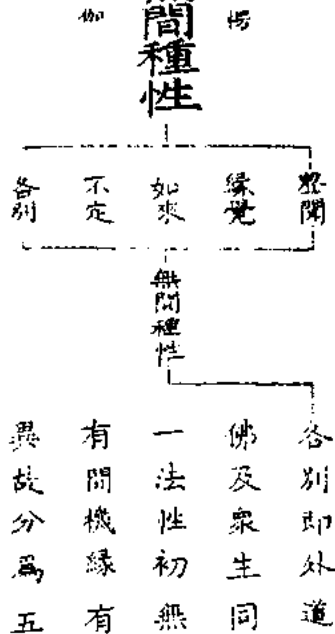 楞
伽
無間種性
聲聞
緣覺
如來
不定
各別
無間種性
各別即外道
佛及衆生同
一法性初無
有間機緣有
異故分爲五